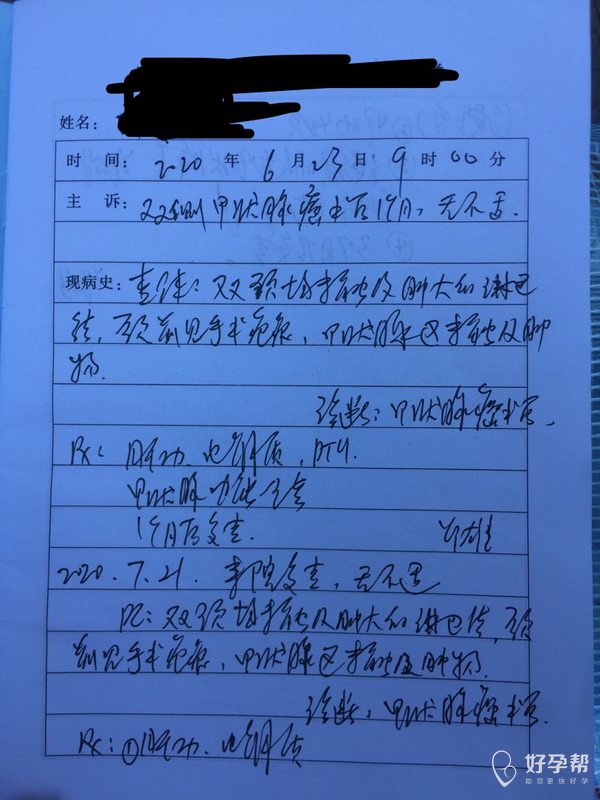 姓名：
时 间： 2020 年 6 月 23 日 9 时 00 分
主 诉： 双侧甲状腺癌术后1个月，无不适．
现病史：查体：双颈均未触及肿大的淋巴
结，颈前见手术疤痕，甲状腺区未触及肿
物．
诊断：甲状腺癌术后．
Rx： 肝功．电解质，PTH．
甲状腺功能全套
1个月后复查．
2020．7．21． 来院复查，无不适
PE：双颈均未触及肿大的淋巴结，颈
前见手术疤痕，甲状腺区未触及肿物．
诊断：甲状腺癌术后．
Rx：①肝功．电解质
好孕帮
助您更快好孕